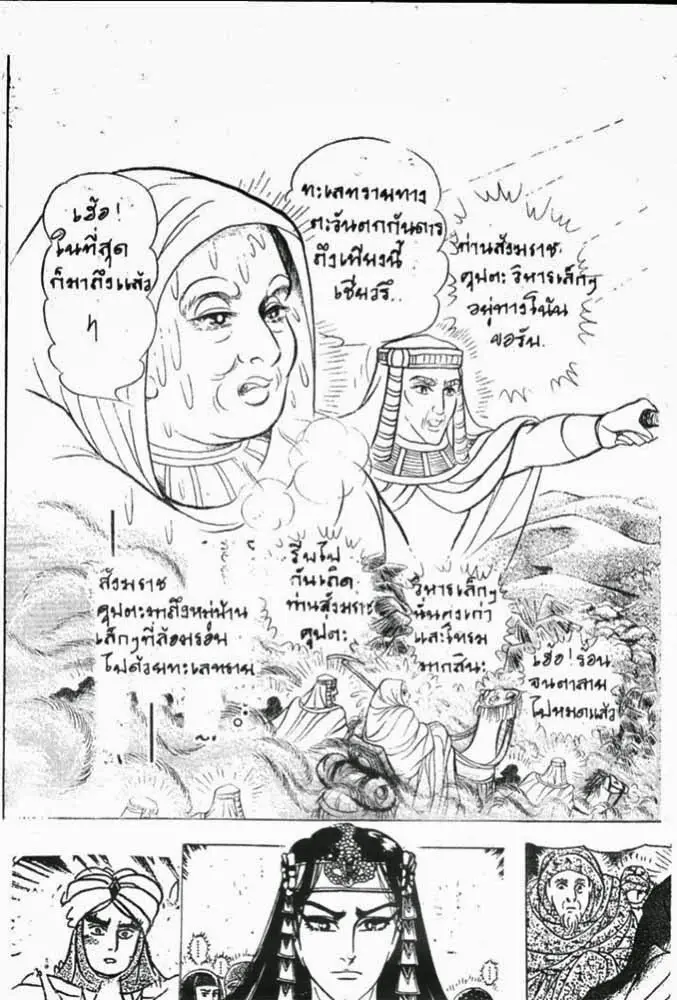 เฮ้อ!
ในที่สุด
ก็มาถึงแล้ว
ๆ
ทะเลทรายทาง
ตะวันตกกันดาร
ถึงเพียงนี้
เชียวรึ.
ท่านสังฆราช
คุปตะ วิหารเล็กๆ
อยู่ทางโน้น
ขอรับ.
สังฆราช
คุปตะมาถึงหมู่บ้าน
เล็กๆที่ล้อมรอบ
ไปด้วยทะเลทราย
รีบไป
กันเถิด
ท่านสังฆราช
คุปตะ
วิหารเล็กๆ
นั่นคงเก่า
และโทรม
มากสินะ
เฮ้อ! ร้อน
จนตาลาย
ไปหมดแล้ว